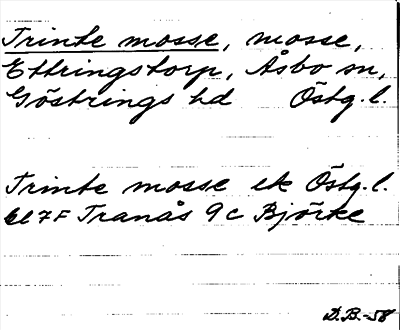 Trinte mosse, mosse,
Ettringstorp, Åsbo sn,
Göstrings hd Östg. l.
Trinte mosse ek Östg. l.
bl 7F Tranås 9c Björke
D.B.-58